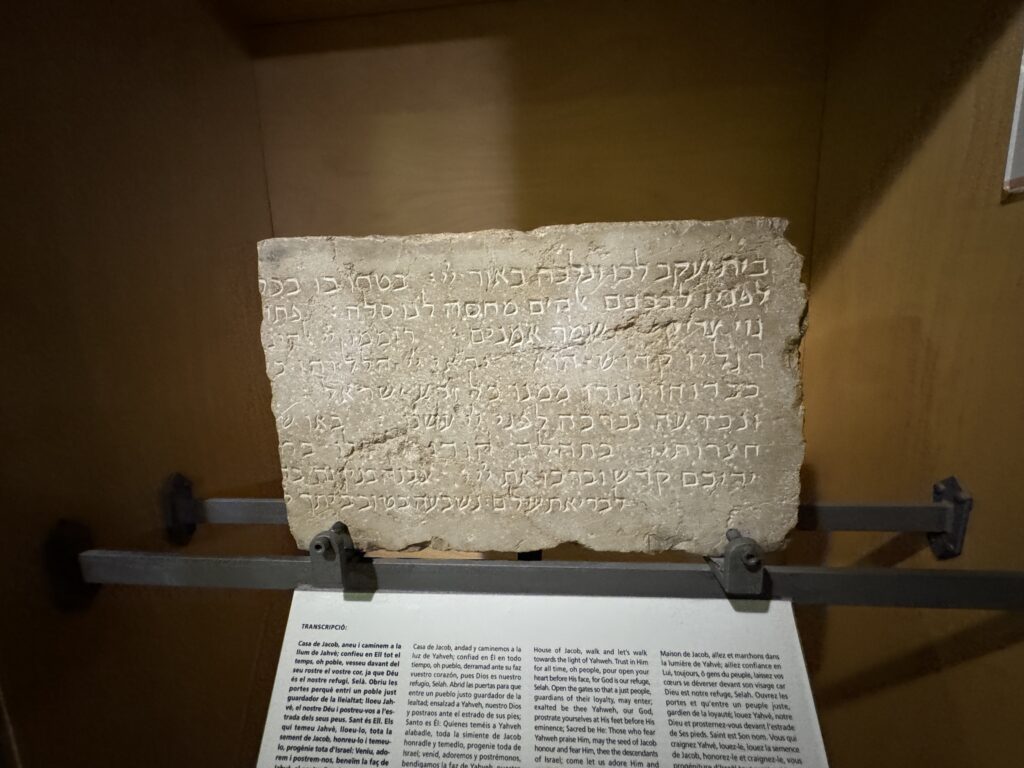 בית יעקב לכו ונלכה באור יי : בטחו בו בכל
לפניו לבבכם אלהים מחסה לנו סלה :
גוי צדיק שמר אמנים : רוממו יי
רגליו קדוש הוא יראי יי הללוהו
כבדוהו וגורו ממנו כל זרע ישראל
ונכרעה נברכה לפני יי עשנו באו
חצרותיו בתהלה
ידיכם קדש וברכו את יי
לבריאת שלם נשבעה בטוב ביתך
TRANSCRIPCIÓ:
Casa de Jacob, aneu i caminem a la
llum de Jahvè; confieu en Ell tot el
temps, oh poble, vesseu davant del
seu rostre el vostre cor, ja que Déu
és el nostre refugi, Selà. Obriu les
portes perquè entri un poble just
guardador de la lleialtat; lloeu Jah-
vè, el nostre Déu i postreu-vos a l'es-
trada dels seus peus. Sant és Ell. Els
qui temeu Jahvè, lloeu-lo, tota la
sement de Jacob, honreu-lo i temeu-
lo, progènie tota d'Israel: Veniu, ado-
rem i postrem-nos, beneïm la faç de
Casa de Jacob, andad y caminemos a la
luz de Yahveh; confiad en Él en todo
tiempo, oh pueblo, derramad ante su faz
vuestro corazón, pues Dios es nuestro
refugio, Selah. Abrid las puertas para que
entre un pueblo justo guardador de la
lealtad; ensalzad a Yahveh, nuestro Dios
y postraos ante el estrado de sus pies;
Santo es Él: Quienes teméis a Yahveh
alabadle, toda la simiente de Jacob
honradle y temedlo, progenie toda de
Israel; venid, adoremos y postrémonos,
bendigamos la faz de Yahveh, nuestro
House of Jacob, walk and let's walk
towards the light of Yahweh. Trust in Him
for all time, oh people, pour open your
heart before His face, for God is our refuge,
Selah. Open the gates so that a just people,
guardians of their loyalty, may enter;
exalted be thee Yahweh, our God,
prostrate yourselves at His feet before His
eminence; Sacred be He: Those who fear
Yahweh praise Him, may the seed of Jacob
honour and fear Him, thee the descendants
of Israel; come let us adore Him and
Maison de Jacob, allez et marchons dans
la lumière de Yahvé; allez confiance en
Lui, toujours, ô gens du peuple, laissez vos
cœurs se déverser devant son visage car
Dieu est notre refuge, Selah. Ouvrez les
portes et qu'entre un peuple juste,
gardien de la loyauté; louez Yahvé, notre
Dieu et prosternez-vous devant l'estrade
de Ses pieds. Saint est Son nom. Vous qui
craignez Yahvé, louez-le, louez la semence
de Jacob, honorez-le et craignez-le, vous
progéniture d'Israël: